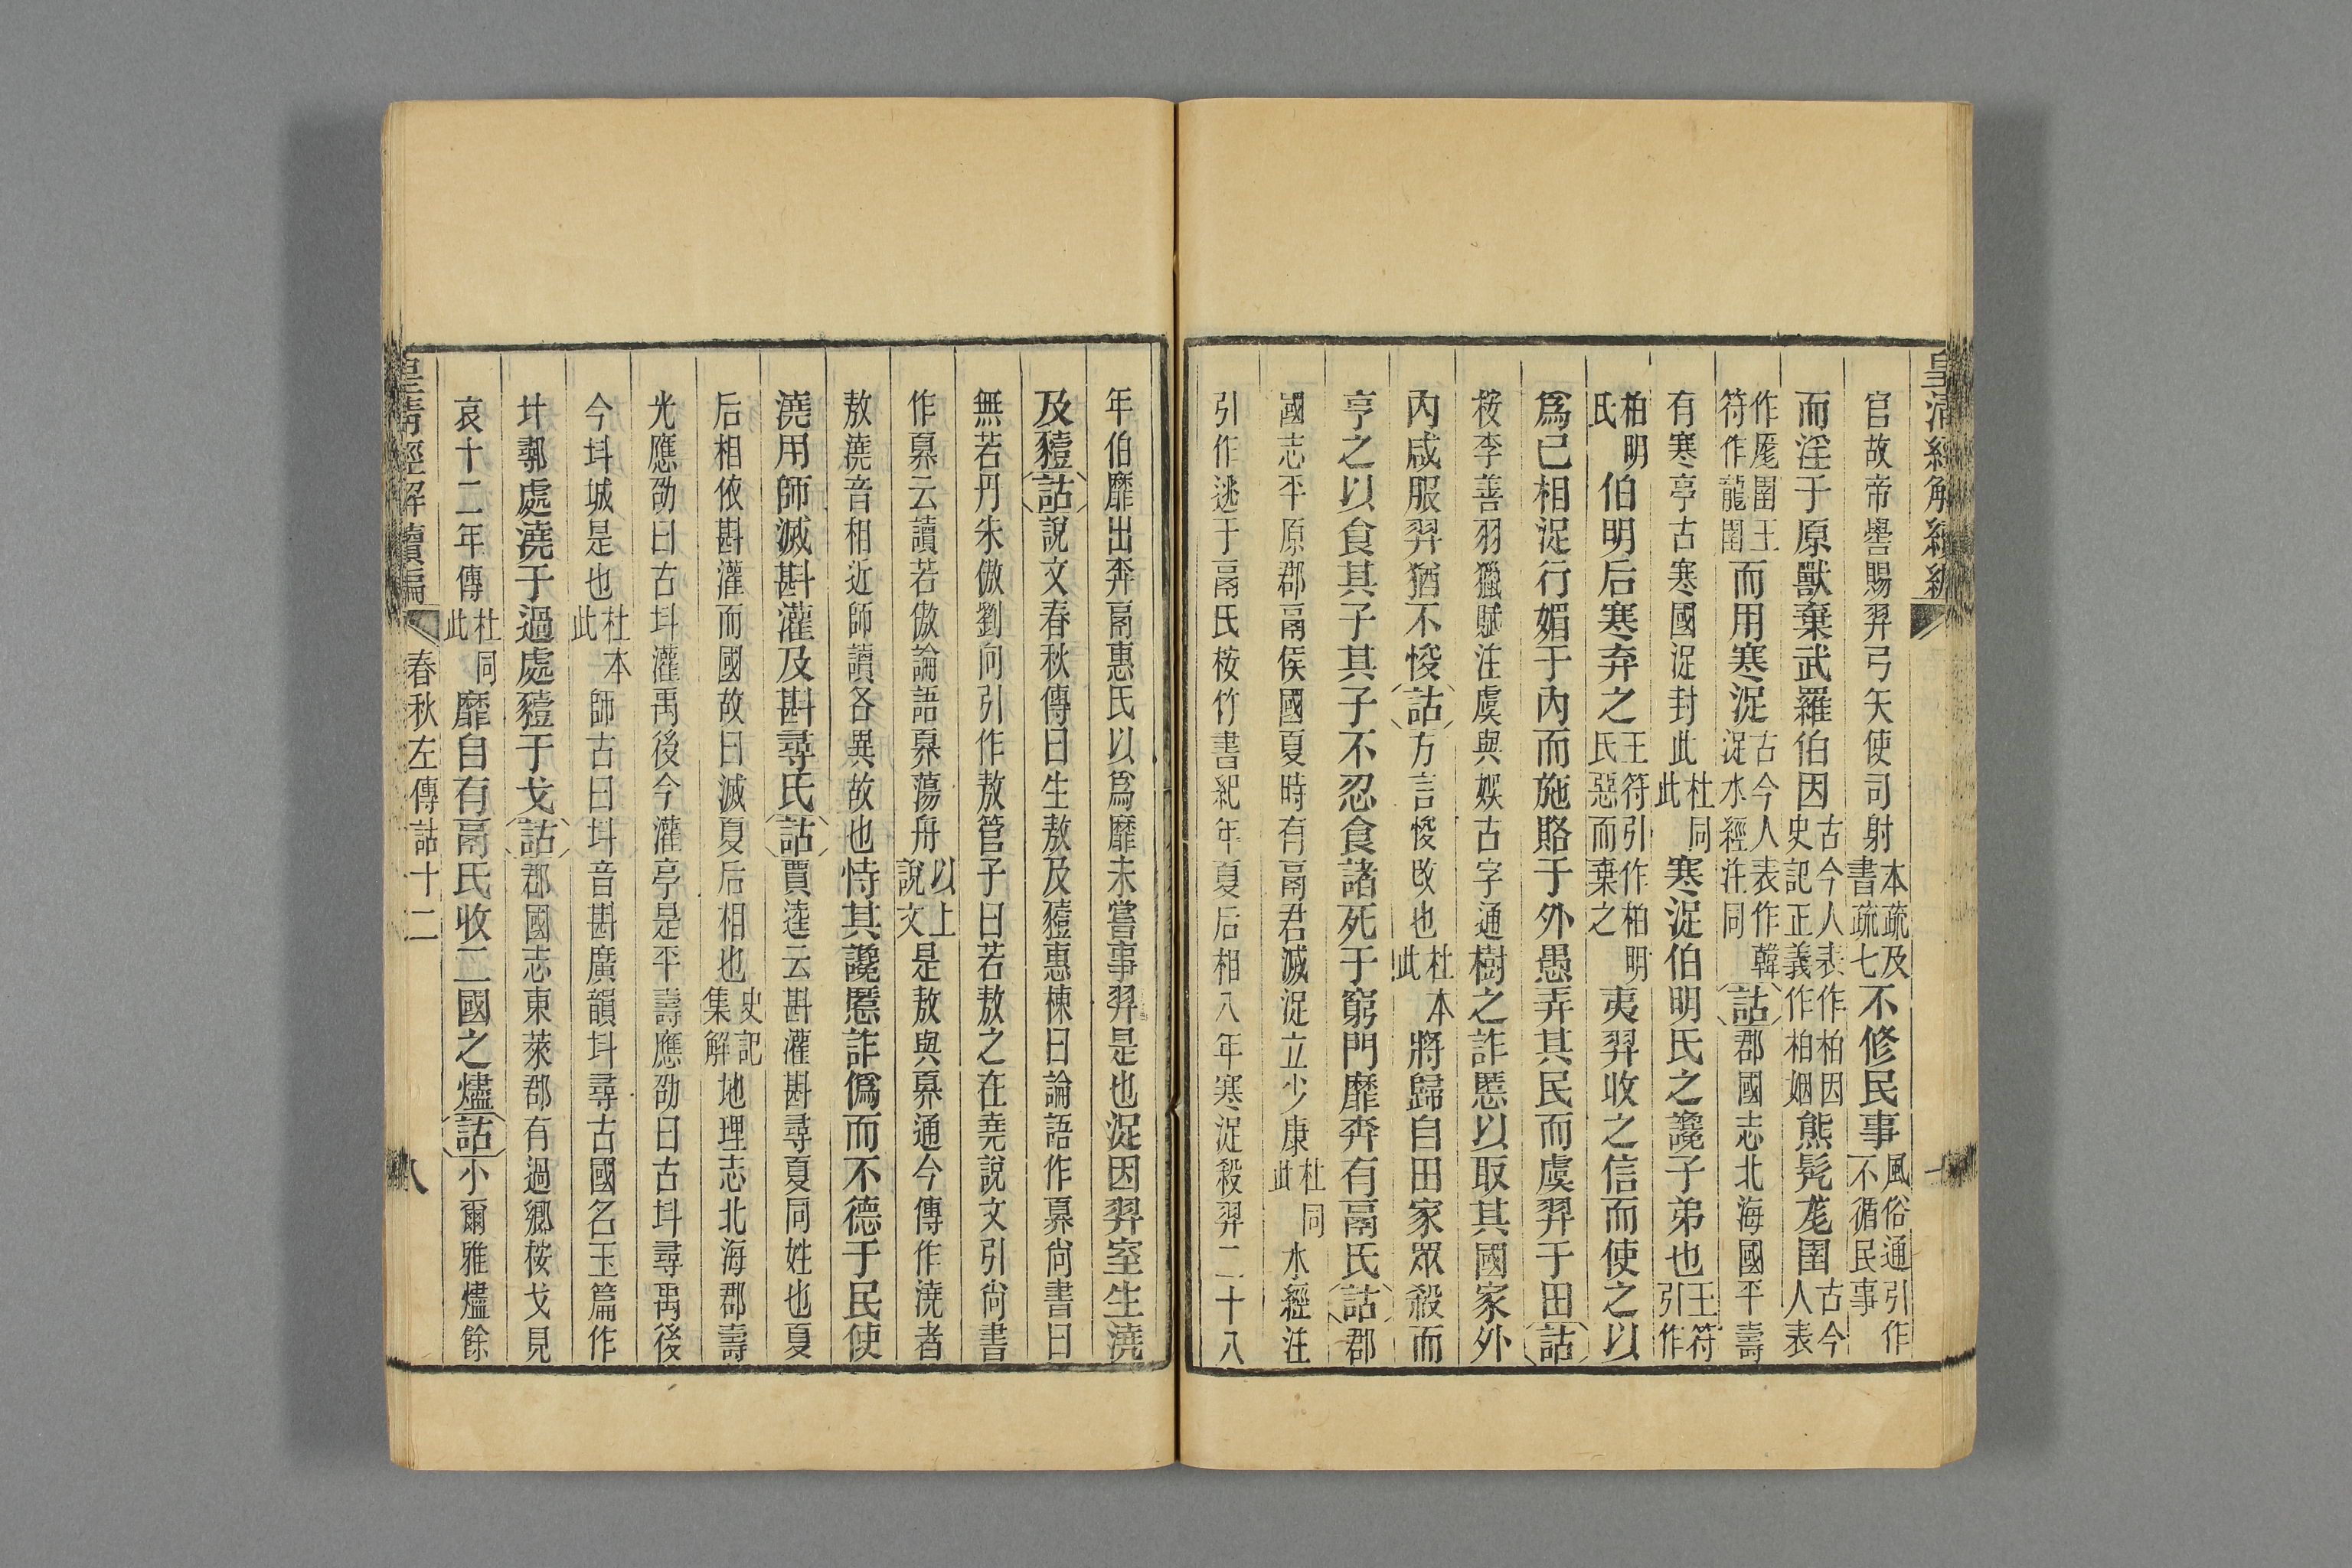 皇清經解續編
官故帝嚳賜羿弓矢使司射本疏及書疏七不修民事風俗通引作不循民事
而淫于原獸棄武羅伯因古今人表作柏因史記正義作柏姻熊髡尨圉古今人表
作厖圉王符作龍圉而用寒浞古今人表作韓浞水經注同詁郡國志北海國平壽
有寒亭古寒國浞封此杜同此寒浞伯明氏之讒子弟也王符引作
柏明氏伯明后寒弃之王符引作柏明氏惡而棄之夷羿收之信而使之以
爲己相浞行媚于內而施賂于外愚弄其民而虞羿于田詁
桉李善羽獵賦注虞與娛古字通樹之詐慝以取其國家外
內咸服羿猶不悛詁方言悛改也杜本此將歸自田家眾殺而
亨之以食其子其子不忍食諸死于窮門靡奔有鬲氏詁郡
國志平原郡鬲侯國夏時有鬲君滅浞立少康杜同此水經注
引作逃于鬲氏桉竹書紀年夏后相八年寒浞殺羿二十八
年伯靡出奔鬲惠氏以爲靡未嘗事羿是也浞因羿室生澆
及豷詁說文春秋傳曰生敖及豷惠棟曰論語作奡尙書曰
無若丹朱傲劉向引作敖管子曰若敖之在堯說文引尙書
作奡云讀若傲論語奡蕩舟以上說文是敖與奡通今傳作澆者
敖澆音相近師讀各異故也恃其讒慝詐僞而不德于民使
澆用師滅斟灌及斟尋氏詁賈逵云斟灌斟尋夏同姓也夏
后相依斟灌而國故曰滅夏后相也史記集解地理志北海郡壽
光應劭曰古㪷灌禹後今灌亭是平壽應劭曰古㪷尋禹後
今㪷城是也杜本此師古曰㪷音斟廣韻㪷尋古國名玉篇作
㪷鄩處澆于過處豷于戈詁郡國志東萊郡有過鄉桉戈見
哀十二年傳杜同此靡自有鬲氏收二國之燼詁小爾雅燼餘
皇清經解續編 春秋左傳詁十二 八